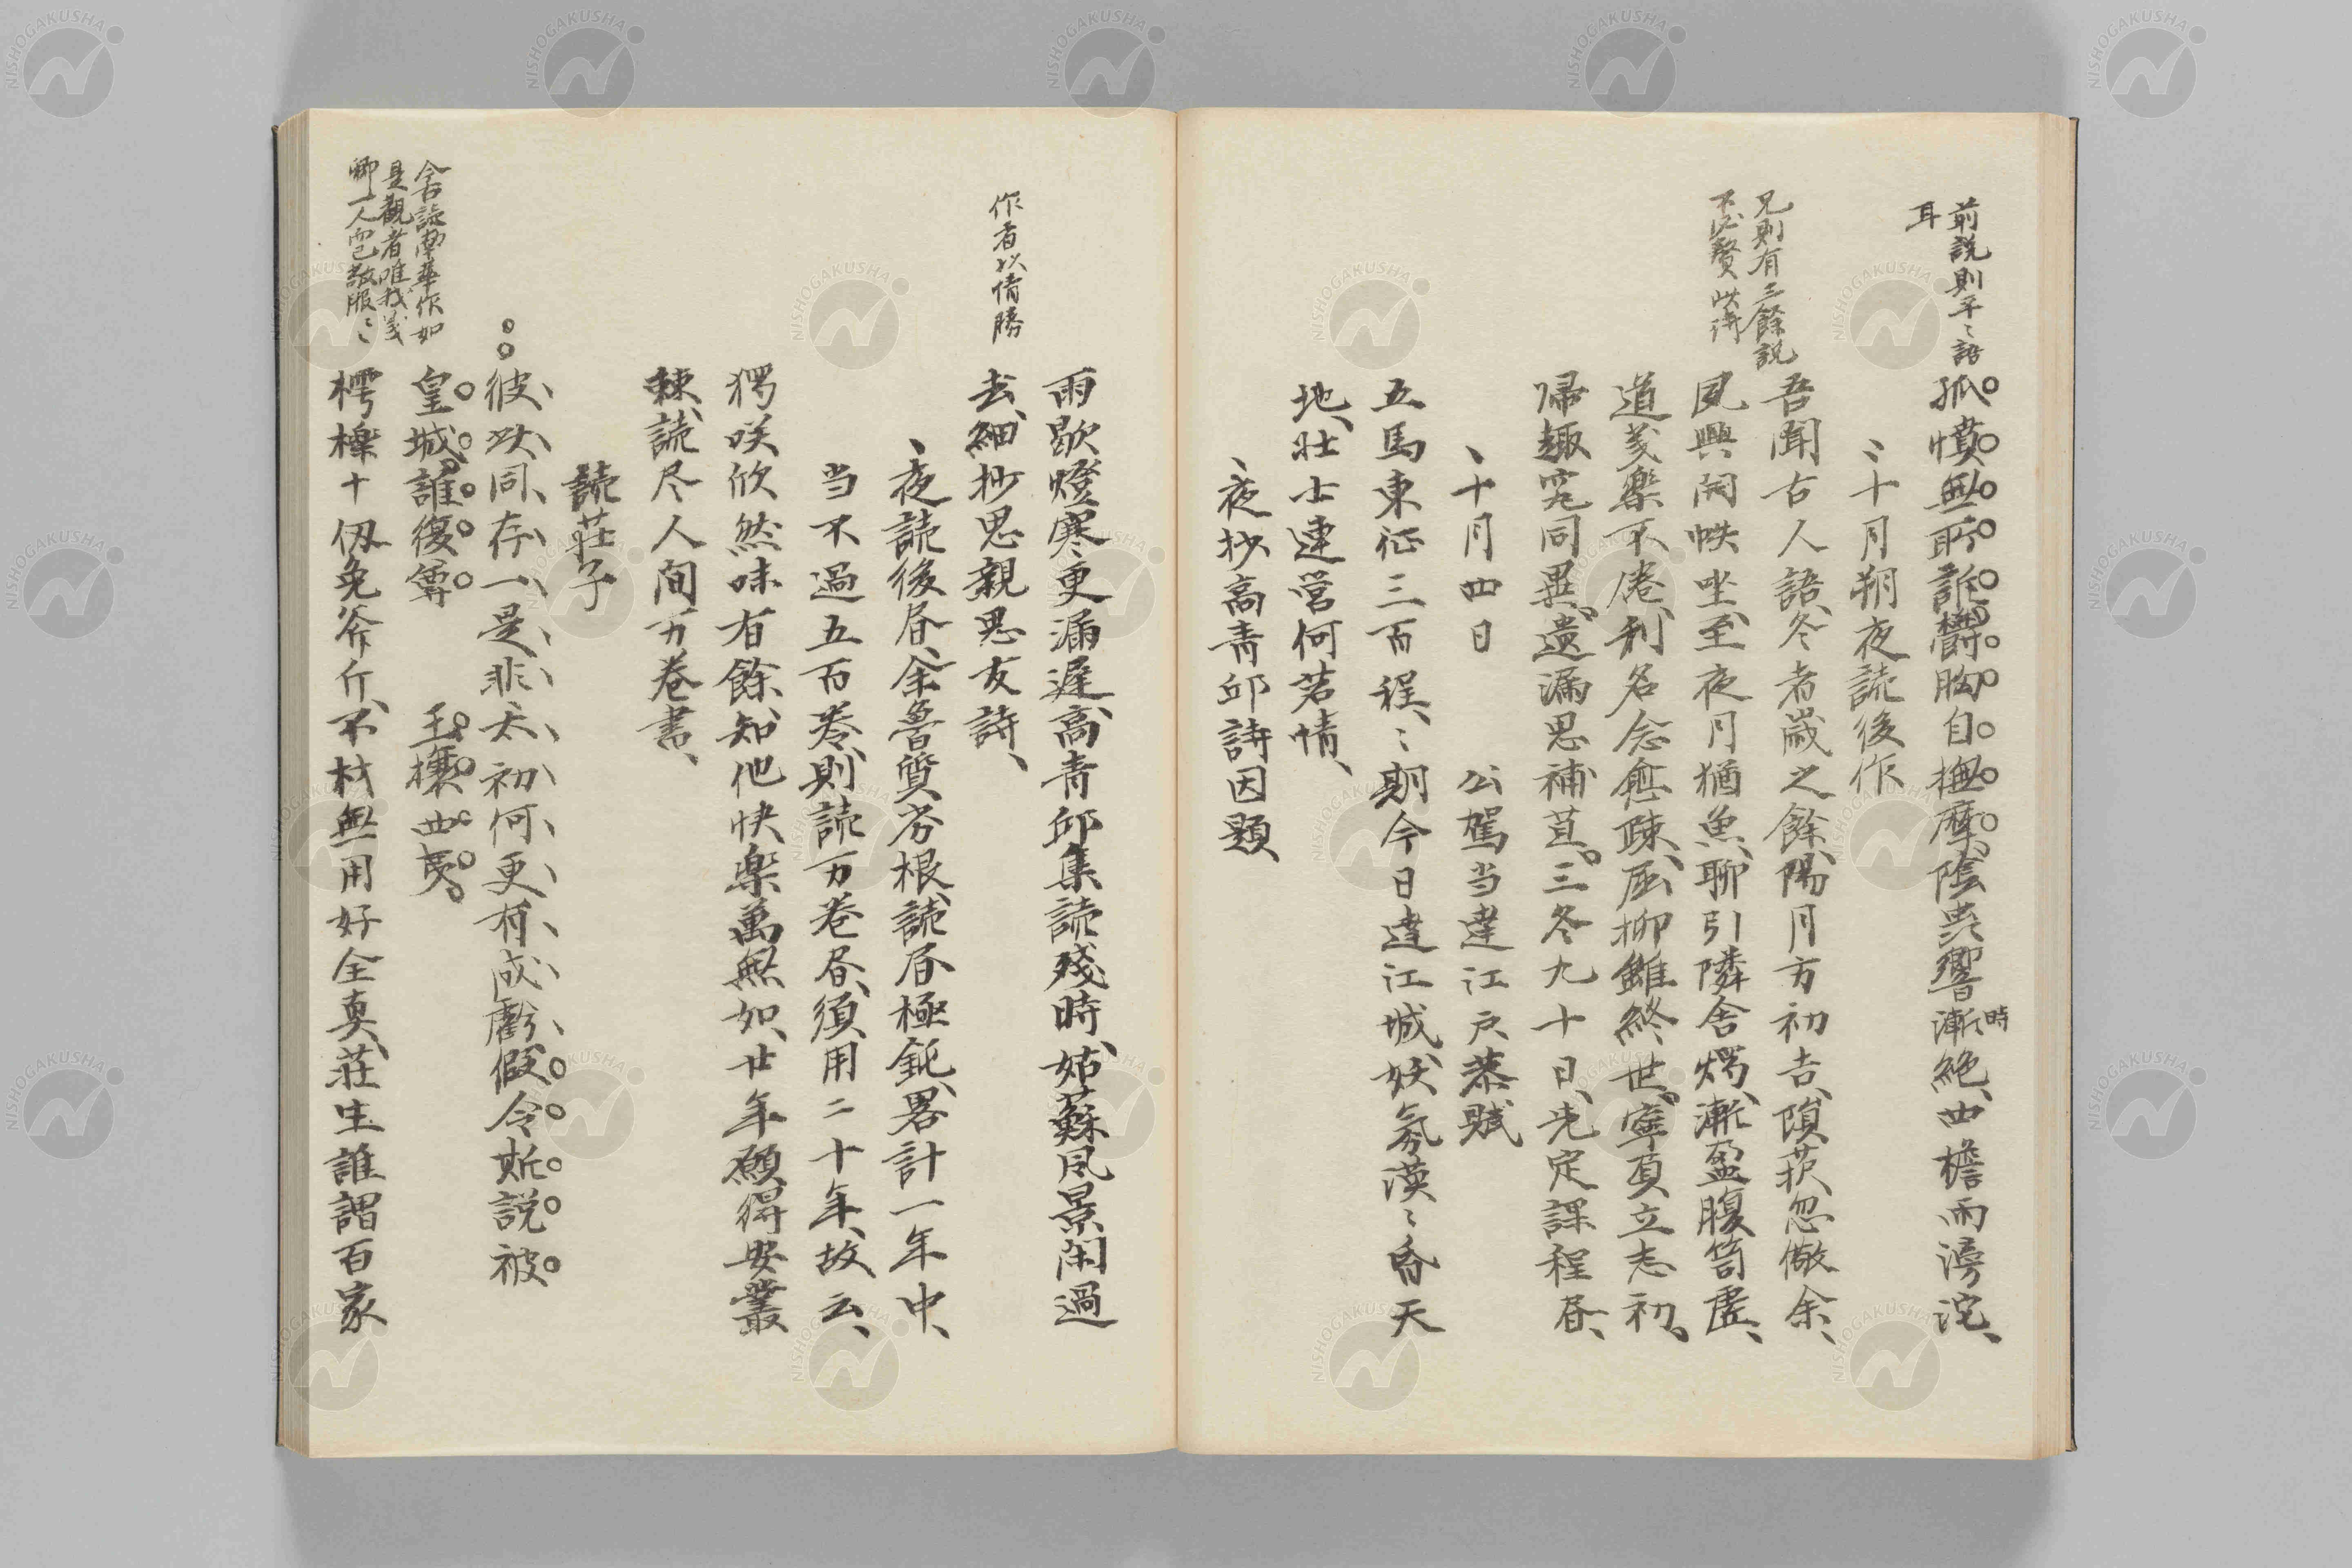 前説則平〻語
耳
孤憤無所訴欝胸自撫摩、陰虫響漸絶、四檐雨滂沱、
時
〻十月朔夜読後作
兄則有三餘説
不必贅
吾聞古人語、冬者歳之餘、陽月方初吉、隕萚忽儆余、
夙興開帙坐、至夜月猶魚、聊引隣舎燭、漸盈腹笥虚、
道義楽不倦、利名念愈疎、屈柳雖終世、寧負立志初、
帰趣究同異、遺漏思補苴。三冬九十日、先定課程居、
、十月四日　公駕当達江戸恭賦
五馬東征三百程、〻期今日達江城、妖氛漠〻昏天
地、壮士連営何若情、
、夜抄高青邱詩因題、
雨歇燈寒更漏遅、高青邱集読残時、姑蘇風景閑過
作者以情勝
去、細抄思親思友詩、
、夜読後居、余魯質劣根、読居極鈍、畧計一年中、
当不過五百巻、則読万巻居、須用二十年、故云、
獨咲欣然味有餘、知他快楽萬無如、廿年願得安叢
棘、読尽人間万巻書、
読荘子
彼以同存一是非、太初何更有成虧、假令斯説被
皇城、誰復尊　王攘四夷。
舎読南華作如
是観者唯我義
卿一人而已敬服〻
樗櫟十仭免斧斤、不材無用好全真、荘生誰謂百家